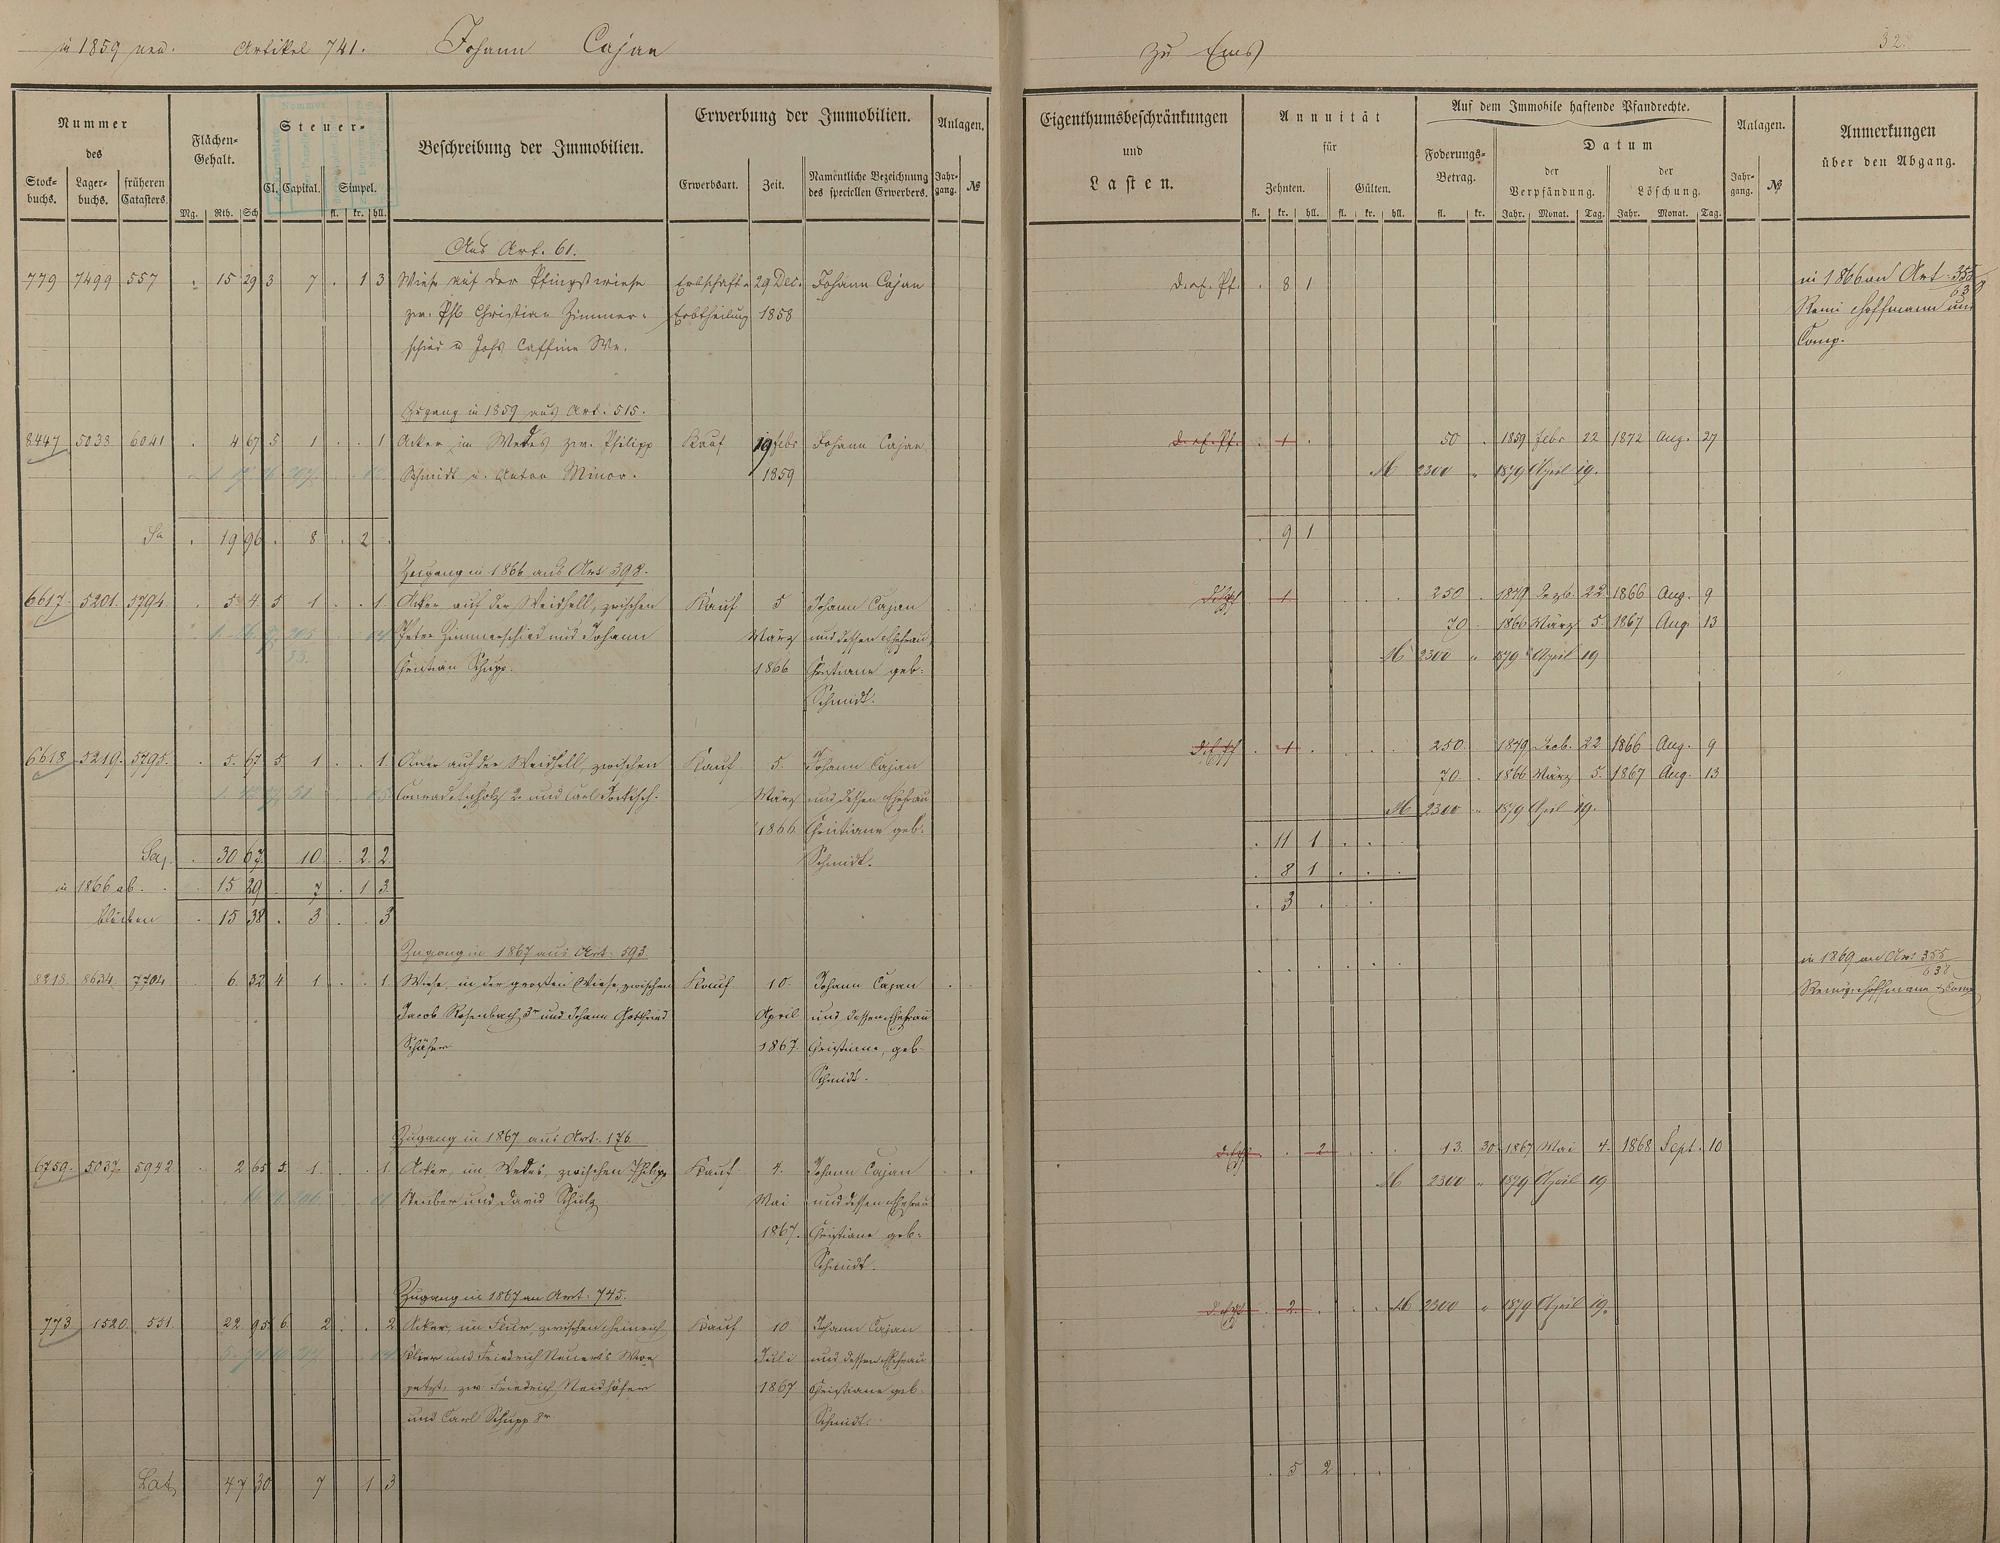 in 1859 neu. Artikel 741. Johann Cajan
zu Ems
32.
Nummer
des
Stock-
buchs.
Lager-
buchs.
früheren
Catasters.
Flächen-
Gehalt.
Mg. Rth. Sch
Steuer-
Cl. Capital. Simpel.
fl. kr. hll.
Beschreibung der Immobilien.
Erwerbung der Immobilien.
Erwerbsart. Zeit.
Namentliche Bezeichnung
des speciellen Erwerbers.
Anlagen.
Jahr-
gang. №
Eigenthumsbeschränkungen
und
Lasten.
Annuität
für
Zehnten. Gülten.
fl. kr. hll. fl. kr. hll.
Auf dem Immobile haftende Pfandrechte.
Foderungs-
Betrag.
fl. kr.
Datum
der
Verpfändung.
der
Löschung.
Jahr. Monat. Tag. Jahr. Monat. Tag.
Anlagen.
Jahr-
gang. №
Anmerkungen
über den Abgang.
Aus Art. 61.
779 7499 557 . 15 29 3 7 . 1 3 Wiese auf der Pfingstwiese Erbschaft u. 29 Dec. Johann Cajan . 8 1
zw. Phl Christian Zimmer- Erbtheilung 1858
schied u Johs Caffine We.
in 1866 an Art. 355
Remi Hoffmann und
Comp.
Zugang in 1859 aus Art. 515.
8447 5038 6041 . 4 67 5 1 . . 1 Acker im Wedes zw. Philipp Kauf 19 Febr Johann Cajan . 1 . 50 . 1859 Febr 22 1872 Aug. 27
Schmidt u. Anton Minor. 1859 M 2300 " 1879 April 19.
Sa . 19 96 . 8 . 2 . . 9 1
Zugang in 1866 aus Art 398.
6617 5201 5794 . 5 4 5 1 . . 1 Acker auf der Weidhell, zwischen Kauf 5 Johann Cajan . 1 . 250 . 1849 Dezb. 22 1866 Aug. 9
Peter Zimmerschied und Johann März und dessen Ehefrau 70 . 1866 März 5. 1867 Aug. 13
Christian Schupp. 1866 Christiane geb. M 2300 " 1879 April 19
Schmidt.
6618 5219 5795 . 5 67 5 1 . . 1 Acker auf der Weidhell, zwischen Kauf 5. Johann Cajan . 1 . 250 . 1849 Dezb. 22 1866 Aug. 9
März und dessen Ehefrau 70 . 1866 März 5. 1867 Aug. 13
1866 Christiane geb. M 2300 " 1879 April 19.
Schmidt.
Sa. . 30 67 10 . 2 2 . 11 1 . .
in 1866 ab. . 15 29 . 7 . 1 3 . 8 1 . .
bleiben . 15 38 . 3 . . 3 . 3 . . .
Zugang in 1867 aus Art. 593.
8218 8634 7704 6 32 4 1 . . 1 Wiese, in der großen Wiese, zwischen Kauf 10. Johann Cajan
Jacob Rosenbach 3r und Johann Gottfried April und dessen Ehefrau
Schäfer 1867. Christiane, geb.
Schmidt.
in 1869 an Art 355
638
Remy, Hoffmann & Comp
Zugang in 1867 aus Art. 176
6759 5037 5942 . 2 65 5. 1 . . 1 Acker, im Wedes, zwischen Philipp Kauf 4. Johann Cajan . 2 . 13. 30. 1867 Mai 4. 1868 Sept. 10
und David Schulz Mai und dessen Ehefrau M 2300 " 1879 April 19
1867. Christiane geb.
Schmidt.
Zugang in 1867 an Art. 745.
773 1520 551 22 95 6 2 . . 2 Acker, im zwischen Heinrich Kauf 10 Johann Cajan . 2 . M 2300 " 1879 April 19.
und Friedrich Juli und dessen Ehefrau
jetzt, zw. Friedrich Neidhöfer 1867 Christiane geb.
und Carl Schupp 8r Schmidt.
Lat. 47 30 7 1 3 . 5 2 . .